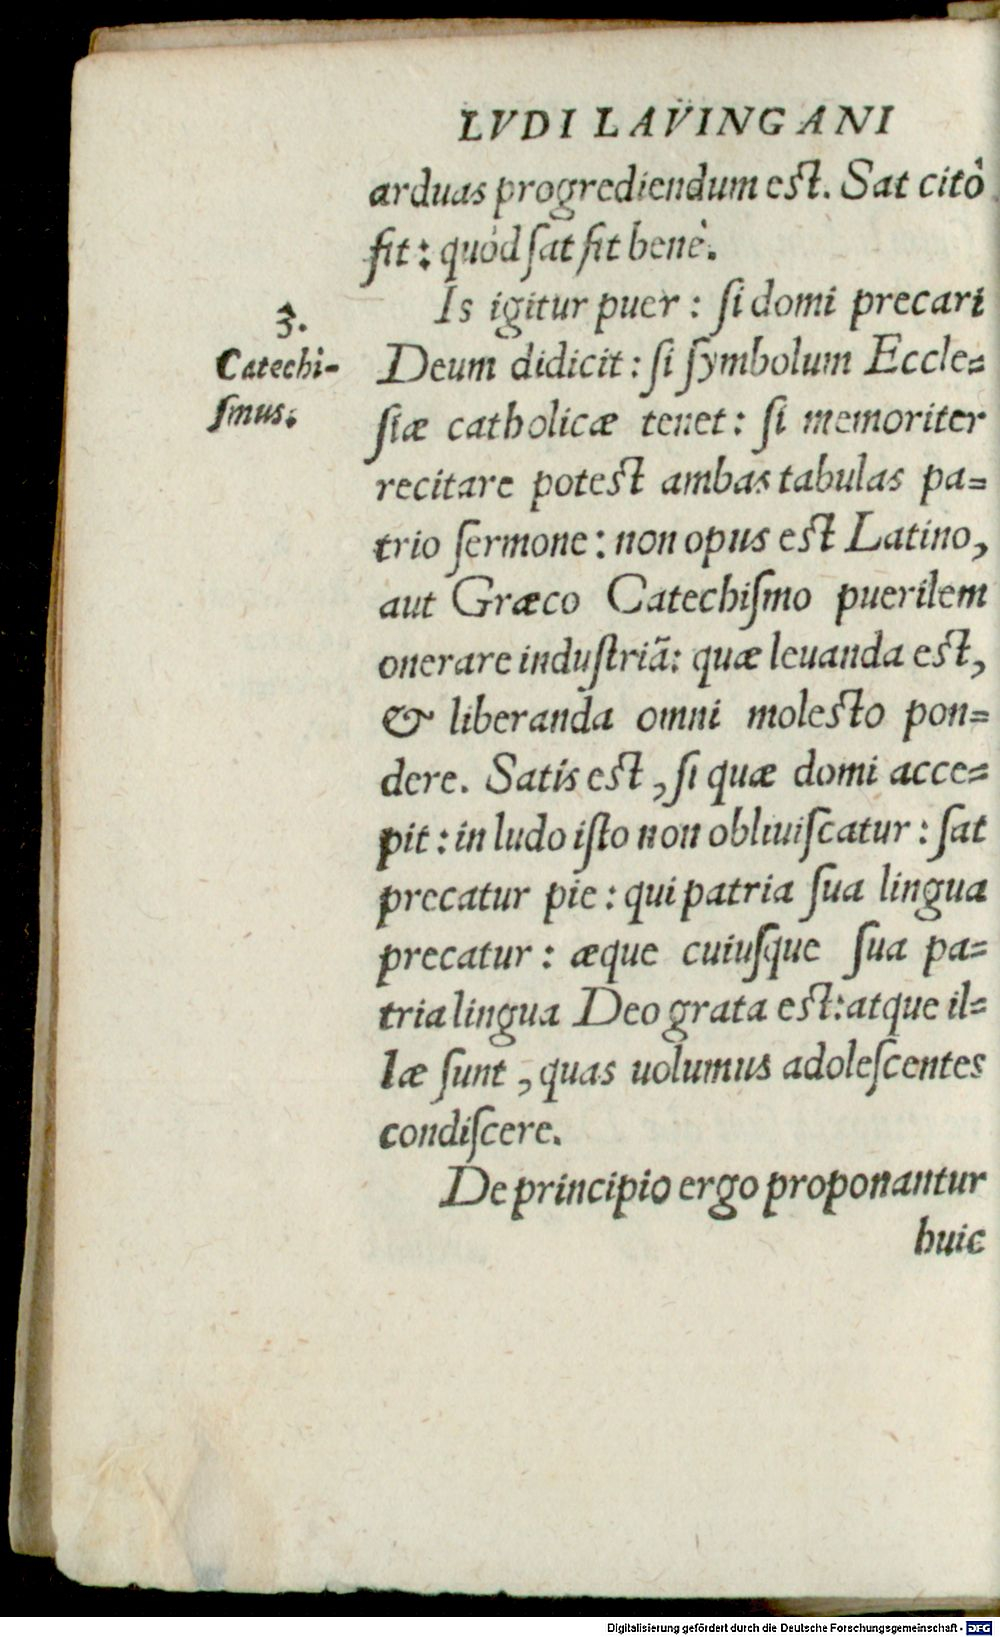 LVDI LAVINGANI
arduas progrediendum est. Sat citò
fit: quòd ſat fit benè.
Is igitur puer: ſi domi precari
3.
Catechi-
ſmus.
Deum didicit: ſi ſymbolum Eccle=
ſiæ catholicæ tenet: ſi memoriter
recitare poteſt ambas tabulas pa=
trio ſermone: non opus eſt Latino,
aut Græco Catechiſmo puerilem
onerare induſtriã: quæ leuanda eſt,
& liberanda omni moleſto pon=
dere. Satis eſt, ſi quæ domi acce=
pit: in ludo iſto non obliuiſcatur: ſat
precatur pie: qui patria ſua lingua
precatur: æque cuiuſque ſua pa=
tria lingua Deo grata eſt: atque il=
læ ſunt, quas uolumus adoleſcentes
condiſcere.
De principio ergo proponantur
huic
Digitalisierung gefördert durch die Deutsche Forschungsgemeinschaft - DFG